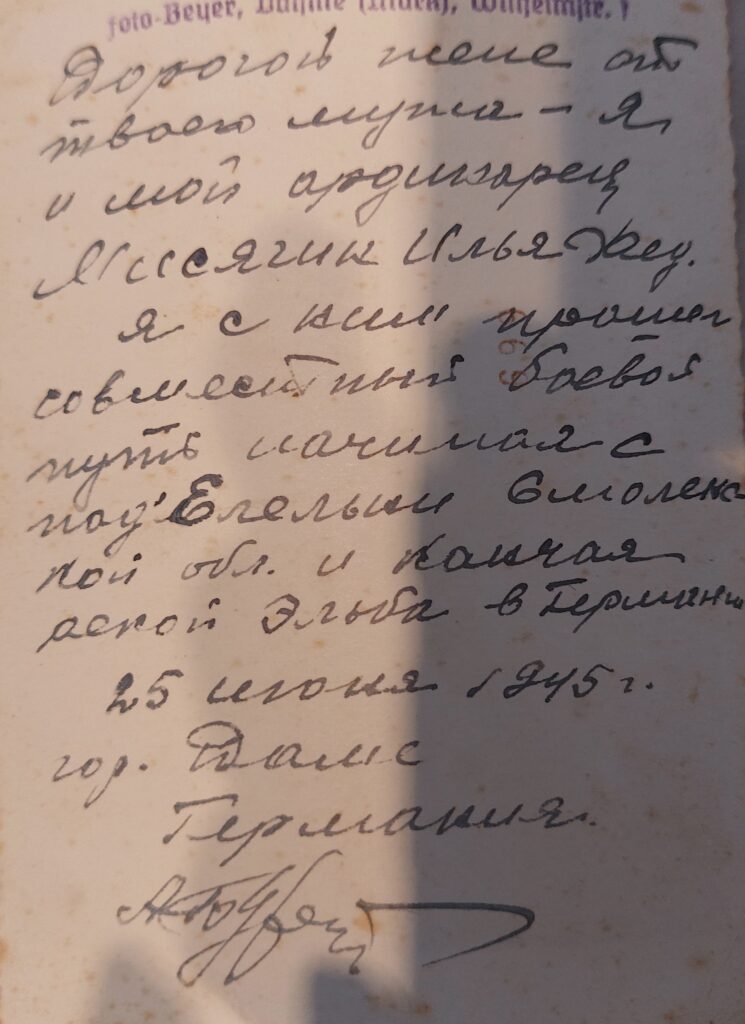 foto-Beyer, Dahme (Mark), Wilhelmstr. 1
Дорогой жене от
твоего мужа – я
и мой ординарец
Мисягин Илья Фед.
я с ним прошел
совместный боевой
путь начиная с
под Ельни Смоленс-
кой обл. и кончая
рекой Эльба в Германии
25 июня 1945 г.
гор. Даме
Германия.